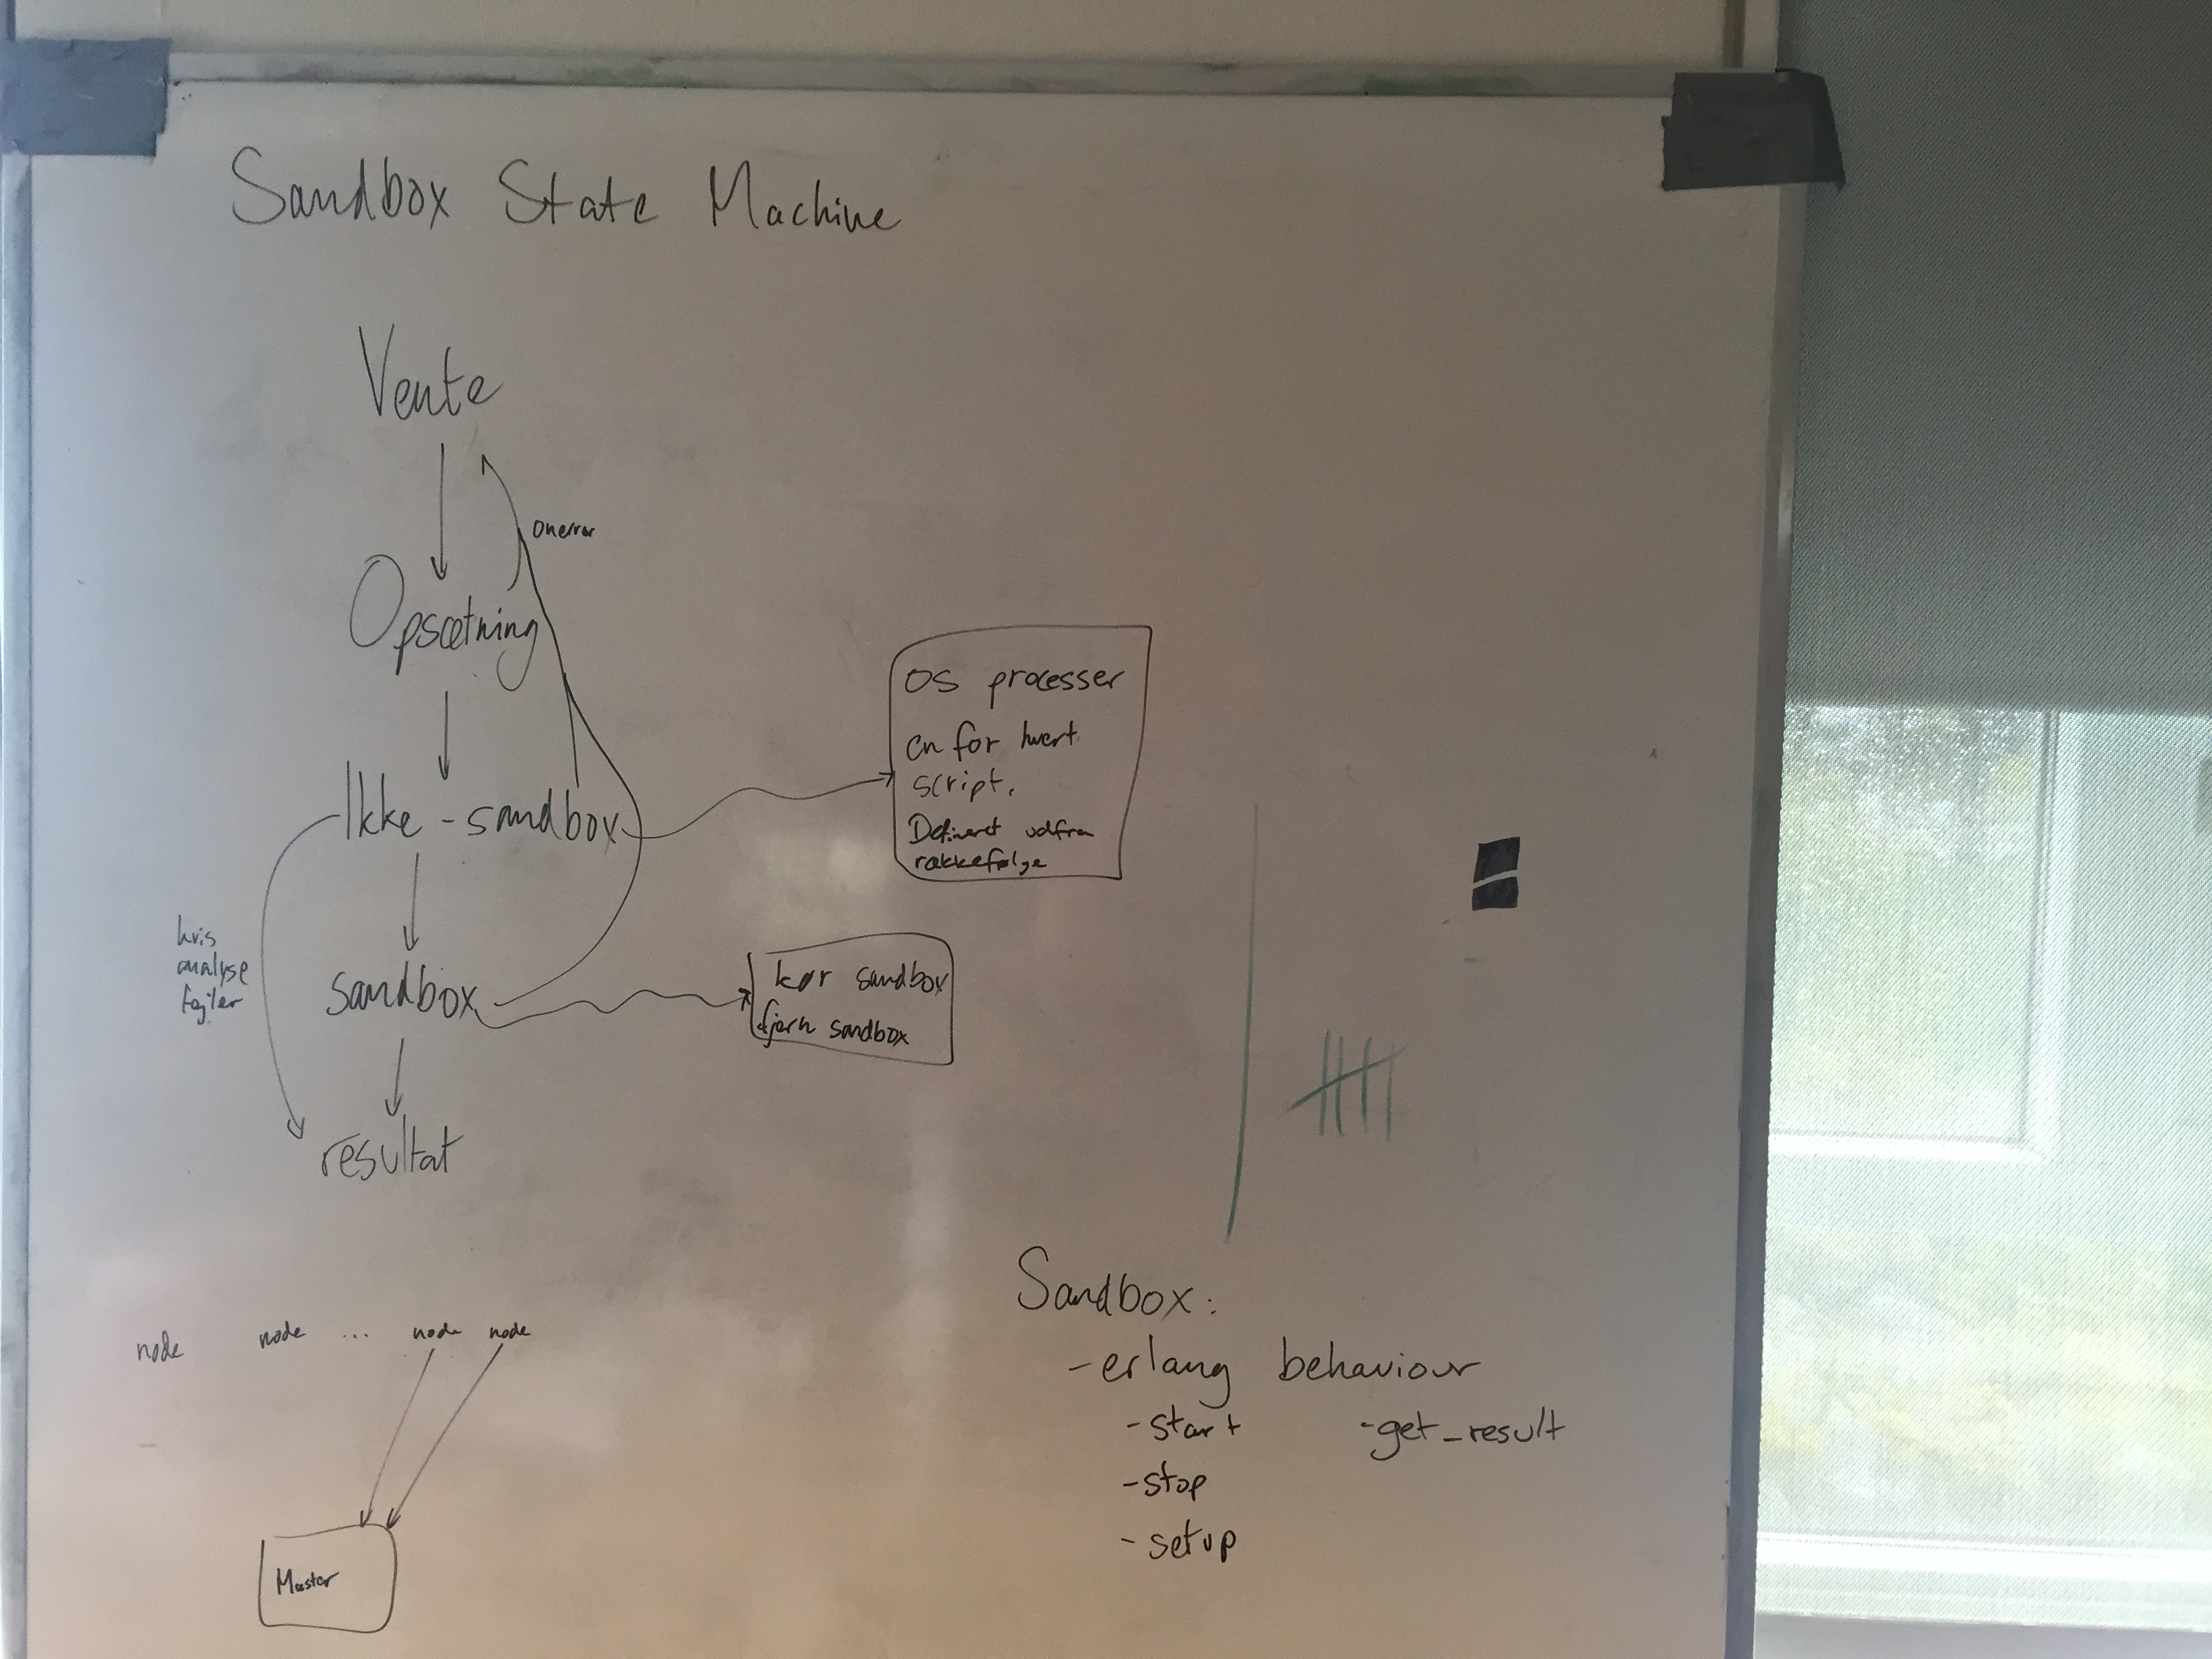 Sandbox State Machine
Vente
On error
Opsætning
OS processer
en for hvert
script.
Defineret udfra
rækkefølge
Ikke - sandbox
hvis
analyse
fejler
sandbox
kør sandbox
fjern sandbox
resultat
node node ... node node
Master
Sandbox:
- erlang behaviour
- start - get_result
- stop
- setup